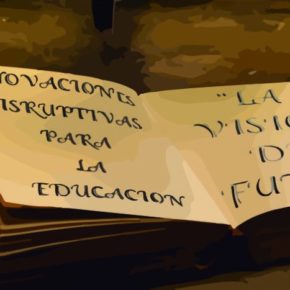 NOVACIONES
DISRUPTIVAS
PARA
LA
EDUCACION
"LA
VISIO
D
FUT